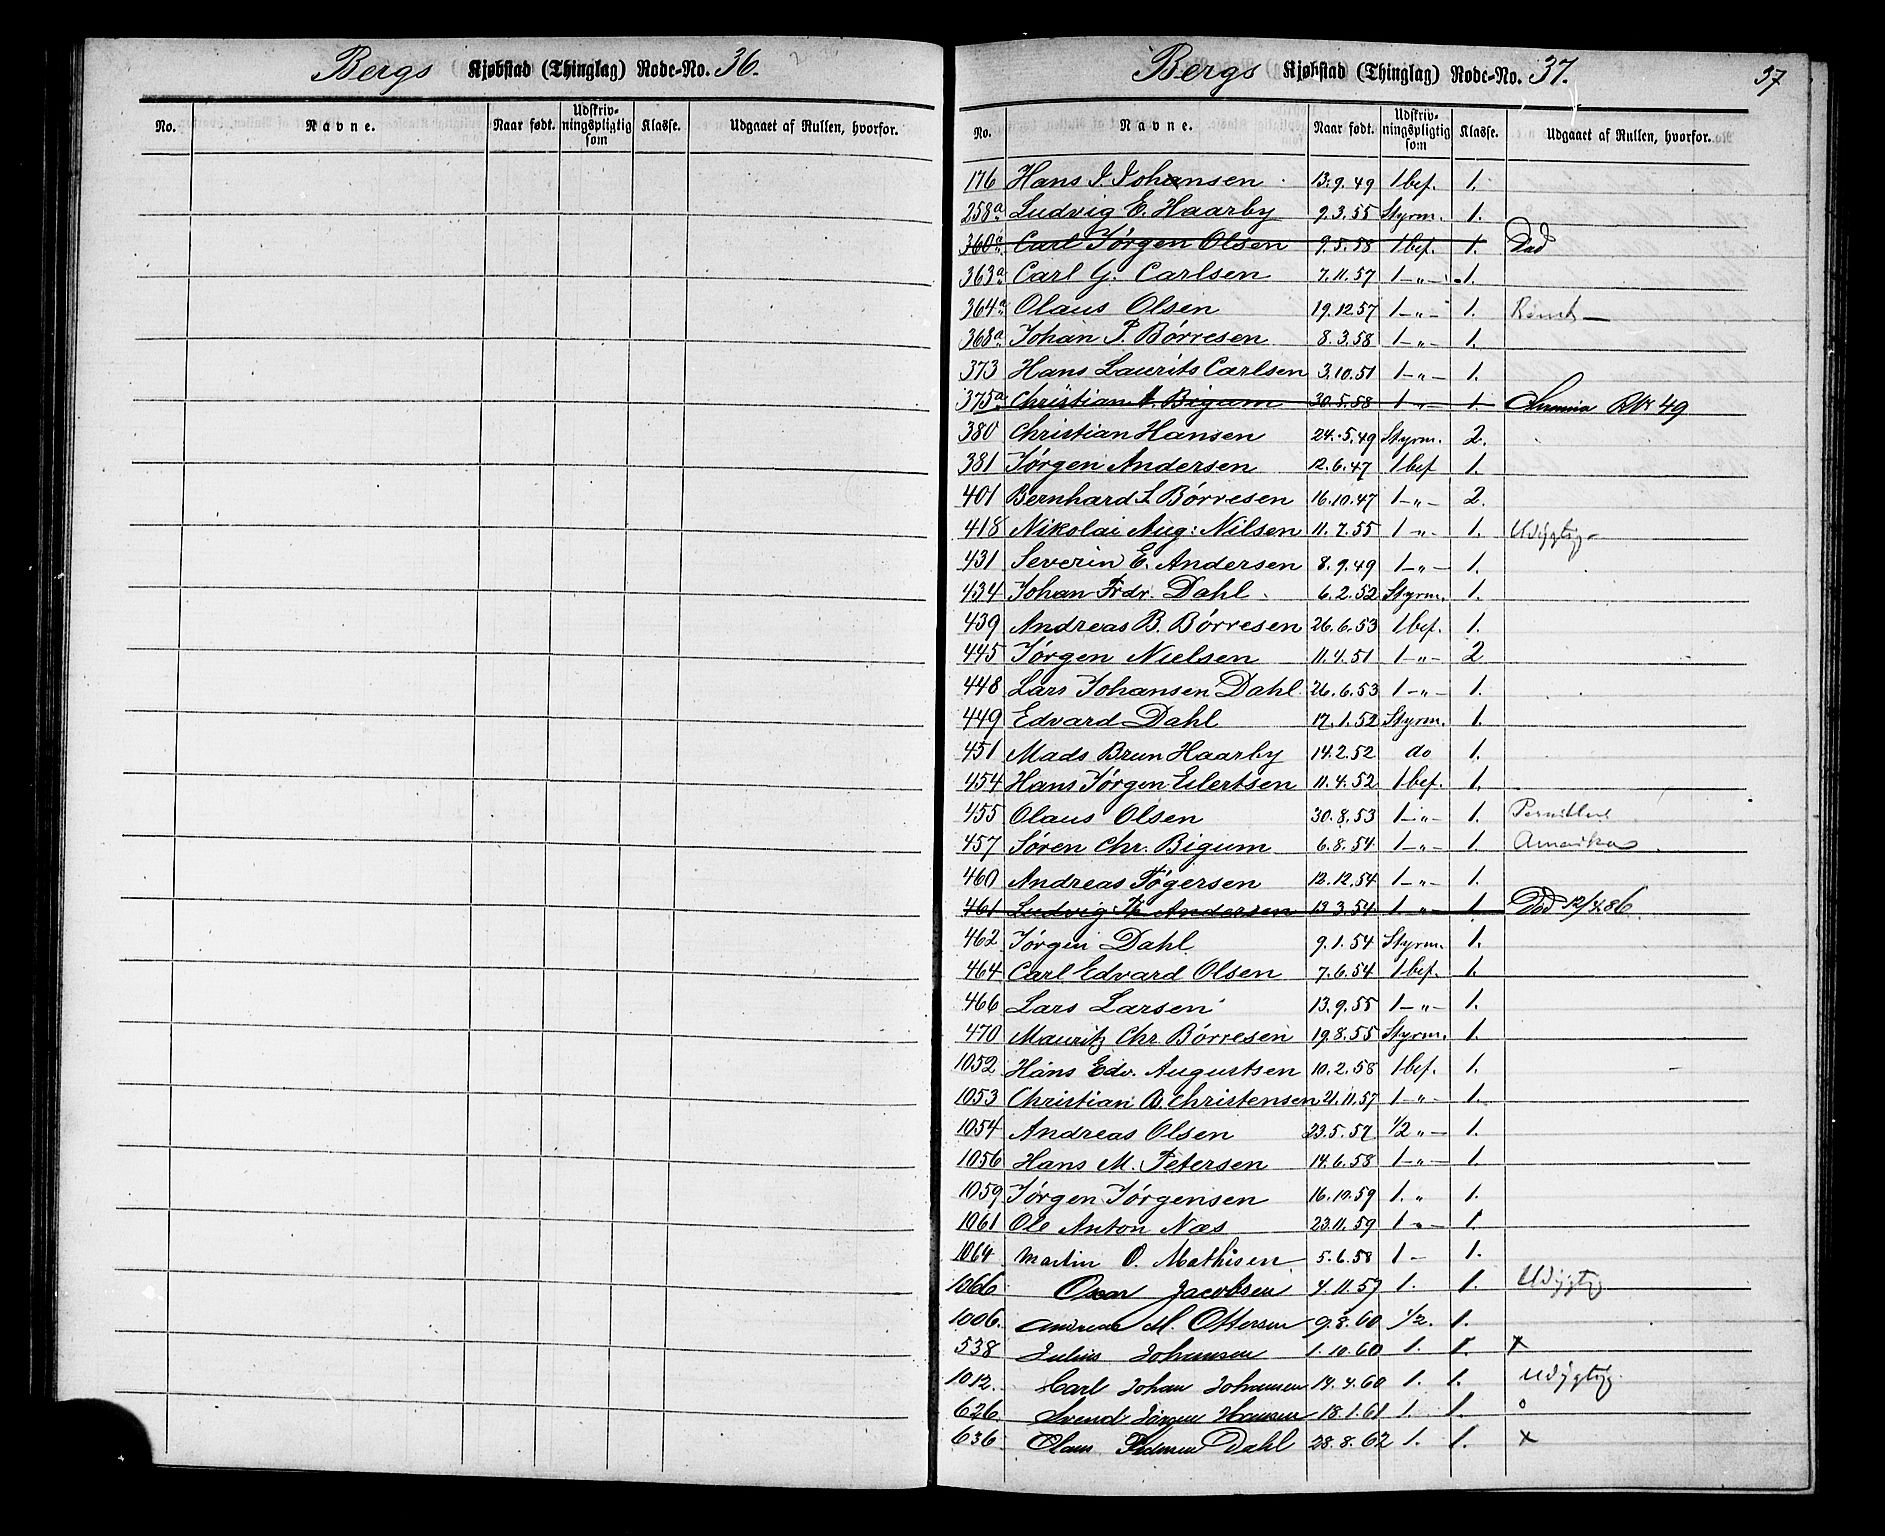 Bergs Kjøbstad (Thinglag) Rode-No. 36.
No. Navne. Naar født. Udskrivningspligtig som Klasse. Udgaaet af Rullen, hvorfor.
Bergs Kjøbstad (Thinglag) Rode-No. 37. 37
No. Navne. Naar født. Udskrivningspligtig som Klasse. Udgaaet af Rullen, hvorfor.
176 Hans J. Johansen 13.9.49 1 bef. 1.
258a Ludvig E. Haarby 9.3.55 Styrm. 1.
360a Carl Jørgen Olsen 9.5.58 1 bef. 1. Død
363a Carl G. Carlsen 7.11.57 1 -„- 1.
364a Olaus Olsen 19.12.57 1 -„- 1.
368a Johan P. Børresen 8.3.58 1 -„- 1.
373 Hans Laurits Carlsen 3.10.51 1 -„- 1.
375a Christian A. Bigum 30.5.58 1 „ 1 49
380 Christian Hansen 24.5.49 Styrm. 2.
381 Jørgen Andersen 12.6.47 1 bef 1.
401 Bernhard L Børresen 16.10.47 1 -„- 2.
418 Nikolai Aug: Nilsen 11.7.55 1 -„- 1. Udygtig
431 Severin E. Andersen 8.9.49 1 -„- 1.
434 Johan Frdr. Dahl 6.2.52 Styrm. 1.
439 Andreas B. Børresen 26.6.53 1 bef. 1.
445 Jørgen Nielsen 11.4.51 1 -„- 2
448 Lars Johansen Dahl 26.6.53 1 -„- 1.
449 Edvard Dahl 17.1.52 Styrm. 1.
451 Mads Brun Haarby 14.2.52 do 1.
454 Hans Jørgen Eilertsen 11.4.52 1 bef. 1.
455 Olaus Olsen 30.8.53 1 -„- 1.
457 Søren Chr. Bigum 6.8.54 1 -„- 1. Amerika
460 Andreas Tøgersen 12.12.54 1 -„- 1.
461 Ludvig Th Andersen 13.3.54 1 „ 1. Død 12/4.86.
462 Jørgen Dahl 9.1.54 Styrm. 1.
464 Carl Edvard Olsen 7.6.54 1 bef. 1.
466 Lars Larsen 13.9.55 1 -„- 1.
470 Mauritz Chr. Børresen 19.8.55 Styrm. 1.
1052 Hans Edv. Augustsen 10.2.58 1 bef. 1.
1053 Christian A. Christensen 21.11.57 1 -„- 1.
1054 Andreas Olsen 23.5.57 1/2 „- 1.
1056 Hans M. Petersen 14.6.58 1 -„- 1.
1059 Jørgen Jørgensen 16.10.59 1. „ 1.
1061 Ole Anton Næs 23.11.59 1 -„- 1.
1064 Martin O. Mathisen 5.6.58 1 - 1.
1066 Oscar Jacobsen 4.11.57 1. 1. Udygtig
1006. Andreas M. Ottersen 9.8.60 1/2. 1.
538 Julius Johansen 1.10.60 1. 1. x
1012. Carl Johan Johansen 14.4.60 1. 1. Udygtig.
626. Svend Jørgen Hansen 18.1.61 1. 1. o
636 Claus Pedersen Dahl 28.8.62 1. 1. x